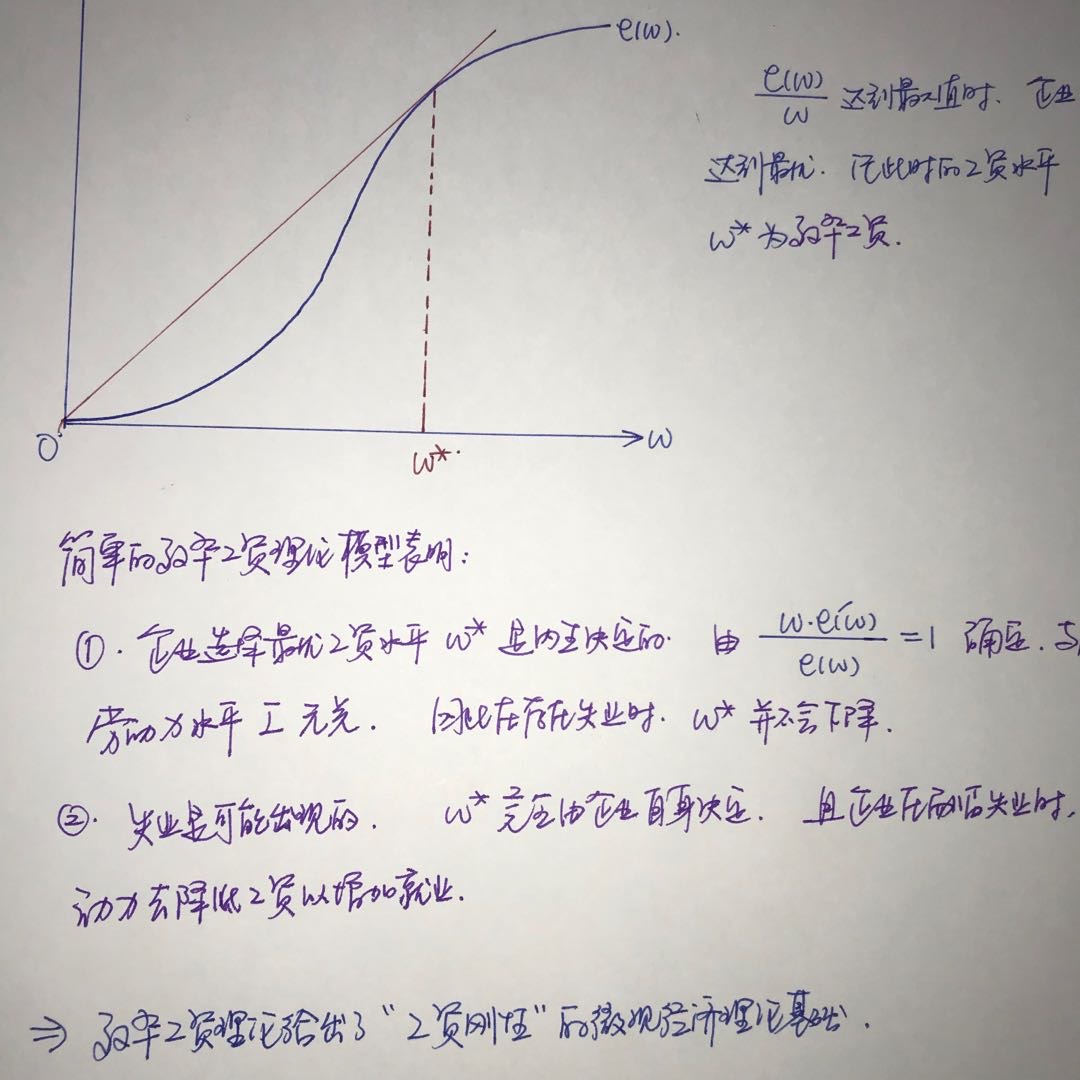 e(w).
e(w)/w 达到最大值时. 企业
达到最优. 记此时的工资水平
w* 为效率工资.
O
w*.
w
简单的效率工资理论模型表明:
①. 企业选择最优工资水平 w* 是内生决定的. 由 w·e'(w)/e(w) = 1 确定. 与
劳动力水平 L 无关. 因此在存在失业时. w* 并不会下降.
②. 失业是可能出现的. w* 完全由企业自身决定. 且企业在面临失业时,
动力去降低工资以增加就业.
⇒ 效率工资理论给出了“工资刚性”的微观经济理论基础.